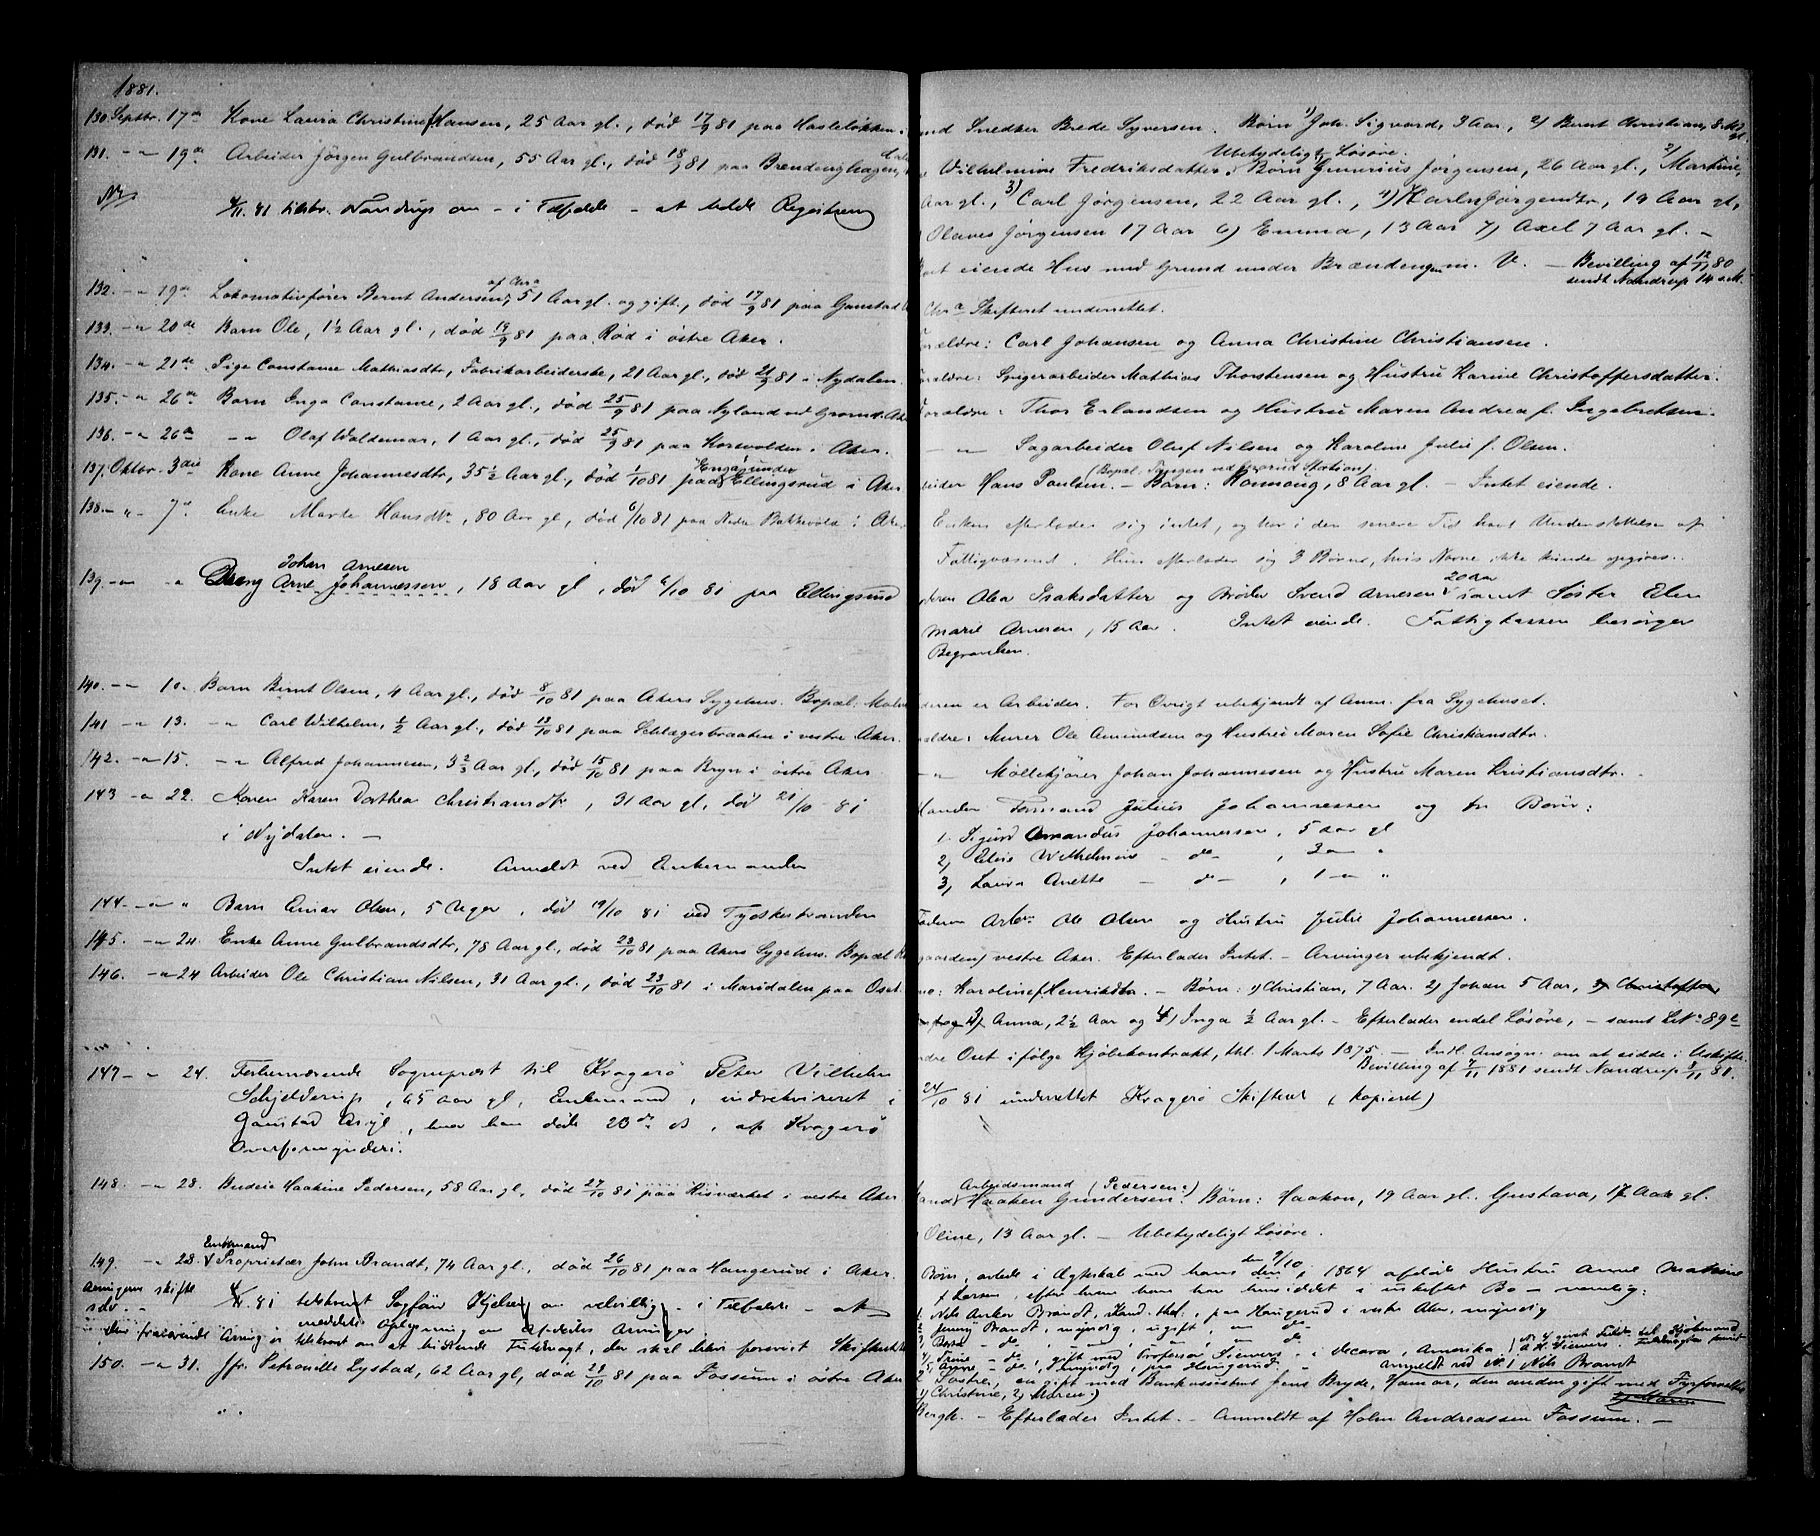 1881.
130. Septbr. 17de Kone Laura Christine f. Hansen, 25 Aar gl., død 17/9 81 paa Hasleløkken.
131. -"- 19de Arbeider Jørgen Gulbrandsen, 55 Aar gl., død 18/9 81 paa Brændenghagen,
81 Nandrup om - i Tilfælde - at holde Registrering
132. -"- 19de Lokomotivfører Bernt Andersen, af Chra 51 Aar gl. og gift, død 17/9 81 paa Gaustad
133. -"- 20de Barn Ole, 1½ Aar gl., død 19/9 81 paa Rød i østre Aker.
134. -"- 21de Pige Constance Mathiasdtr, Fabrikarbeiderske, 21 Aar gl., død 21/9 81 i Nydalen.
135. -"- 26de Barn Inga Constance, 2 Aar gl., død 25/9 81 paa Nyland ved Grorud. Aker
136. -"- 26de -"- Olaf Waldemar, 1 Aar gl., død 25/9 81 paa Korsvolden i Aker.
137. Oktbr. 3die Kone Anne Johannesdtr, 35½ Aar gl., død 1/10 81 paa Enga under Ellingsrud i Aker
138. -"- 7de Enke Marte Hansdtr, 80 Aar gl., død 6/10 81 paa Nedre Bakkevold i Aker
139. -"- " Dreng Johan Arnesen
Arne Johannessen, 18 Aar gl, død 6/10 81 paa Ellingsrud
140. -"- 10. Barn Bernt Olsen, 4 Aar gl., død 8/10 81 paa Akers Sygehus. Bopæl:
141 -"- 13. -"- Carl Wilhelm, ½ Aar gl., død 13/10 81 paa Schlægersbraaten i vestre Aker.
142. -"- 15. -"- Alfred Johannesen, 3⅔ Aar gl., død 15/10 81 paa Bryn i østre Aker.
143 -"- 22. Konen Karen Dorthea Christiansdtr, 31 Aar gl, død 21/10 81
i Nydalen. -
Intet eiende. Anmeldt ved Enkemanden
144. -"- " Barn Einar Olsen, 5 Uger, død 19/10 81 ved Tyskestranden
145. -"- 24. Enke Anne Gulbrandsdtr, 78 Aar gl., død 23/10 81 paa Akers Sygehus. Bopæl
146. -"- 24 Arbeider Ole Christian Nilsen, 31 Aar gl., død 23/10 81 i Maridalen paa Oset.
147 -"- 24. Forhenværende Sogneprest til Kragerø Peter Vilhelm
Schjelderup, 65 Aar gl, Enkemand, indrekvireret i
Gaustad Asyl, hvor han døde 23de ds, af Kragerø
Overformynderi.
148. -"- 28. Budeie Haakine Pedersen, 58 Aar gl, død 27/10 81 paa Risværket i vestre Aker
149. -"- 28. Enkemand Proprietær John Brandt, 74 Aar gl., død 26/10 81 paa Haugerud i Aker.
Arvingerne skifte
selv. - 81 tilskrevet Sagfør Kjelsen om velvillig - i Tilfælde - at
meddele Oplysning om Afdødes Arvinger
150. -"- 31. Jfr. Petronelle Lystad, 62 Aar gl, død 28/10 81 paa Fossum i østre Aker
Mand Snedker Brede Syversen. Børn 1) Joh. Sigvard, 3 Aar, 2) Bernt Christian, 8 Md gl.
Ubetydeligt Løsøre.
Wilhelmine Fredriksdatter. Børn Gunerius Jørgensen, 26 Aar gl., 2) Martine,
Aar gl., 3) Carl Jørgensen, 22 Aar gl., 4) Karln Jørgensdtr, 19 Aar gl,
Olaves Jørgensen 17 Aar 6) Emma, 13 Aar 7) Axel 7 Aar gl. -
eiende Hus med Grund under Brændengen m. V. - Bevilling af 12/11 80
sendt Nandrup 14 s.M.
Chra Skifteret underrettet.
Forældre: Carl Johansen og Anna Christine Christiansen.
Forældre: Spigerarbeider Mathias Thorstensen og Hustru Karine Christoffersdatter.
Forældre: Thor Erlandsen og Hustru Maren Andrea f. Ingebretsen.
-"- Sagarbeider Oluf Nilsen og Karoline Julie f. Olsen.
Arbeider Hans Poulsen. (Bopæl. Tangen ved Grorud Station). - Barn: Ronnoug, 8 Aar gl. - Intet eiende.
Enken efterlader sig intet, og har i den senere Tid havt Understøttelse af
Fattigvæsenet. Hun efterlader sig 3 Børn, hvis Navne ikke kunde opgives.
Moderen Olea Isaksdatter og Broder Svend Arnesen 20 Aar samt Søster Elen
Marie Arnesen, 15 Aar. Intet eiende. Fattigkassen besørger
Begravelsen.
Faderen er Arbeider. For Øvrigt ubekjendt af Anm. fra Sygehuset.
Forældre: Murer Ole Amundsen og Hustru Maren Sofie Christiansdtr.
-"- Møllekjører Johan Johannesen og Hustru Maren Kristiansdtr.
Manden Formand Julius Johannessen og tre Børn:
1. Sigurd Amandus Johannessen, 5 Aar gl
2) Elise Wilhelmine - do - , 3 - "
3) Laura Anette - do - , 1 - "
Faderen Arbr. Ole Olsen og Hustru Julie Johannessen.
gaarden) vestre Aker. Efterlader Intet. - Arvinger ubekjendt.
Karoline f. Henriksdtr. - Børn: 1) Christian, 7 Aar. 2) Johan 5 Aar, 3) Christoffer
3) Anna, 2½ Aar og 4) Inga ½ Aar gl. - Efterlader endel Løsøre, - samt LNo 89c
Oset i følge Kjøbekontrakt, thl. 1 Marts 1875. - Indl. Ansøgn. om at sidde i Uskifte.
Bevilling af 7/11 1881 sendt Nandrup 8/11 81.
24/10 81 underrettet Kragerø Skifteret (kopieret)
Mand Arbeidsmand Haaken Gundersen (Pedersen?) Børn: Haakon, 19 Aar gl. Gustava, 17 Aar gl.
Oline, 13 Aar gl. - Ubetydeligt Løsøre.
Børn, avlede i Ægteskab med hans den 9/10 1864 afdøde Hustru Anne Mathine
f. Larsen, efter hvem han har hensiddet i uskiftet Bo - nemlig:
1. Nils Anker Brandt, Kand. theol., paa Haugerud i vestre Aker, myndig
2) Jenny Brandt, myndig, ugift, - do
3) - do - , - " - do
4) Trine - do - , gift med Professor Sievers, i Decora, Amerika.
5) Anne - do - , myndig, paa Haugerud - anmeldt ved No. 1 Nils Brandt
2 Søstre, en gift med Bankassistent Jens Bryde, Hamar, den anden gift med Fyrforvalter
1) Christine, 2) Maren.)
Bergh. - Efterlader Intet. - Anmeldt af Holm Andreassen Fossum. -